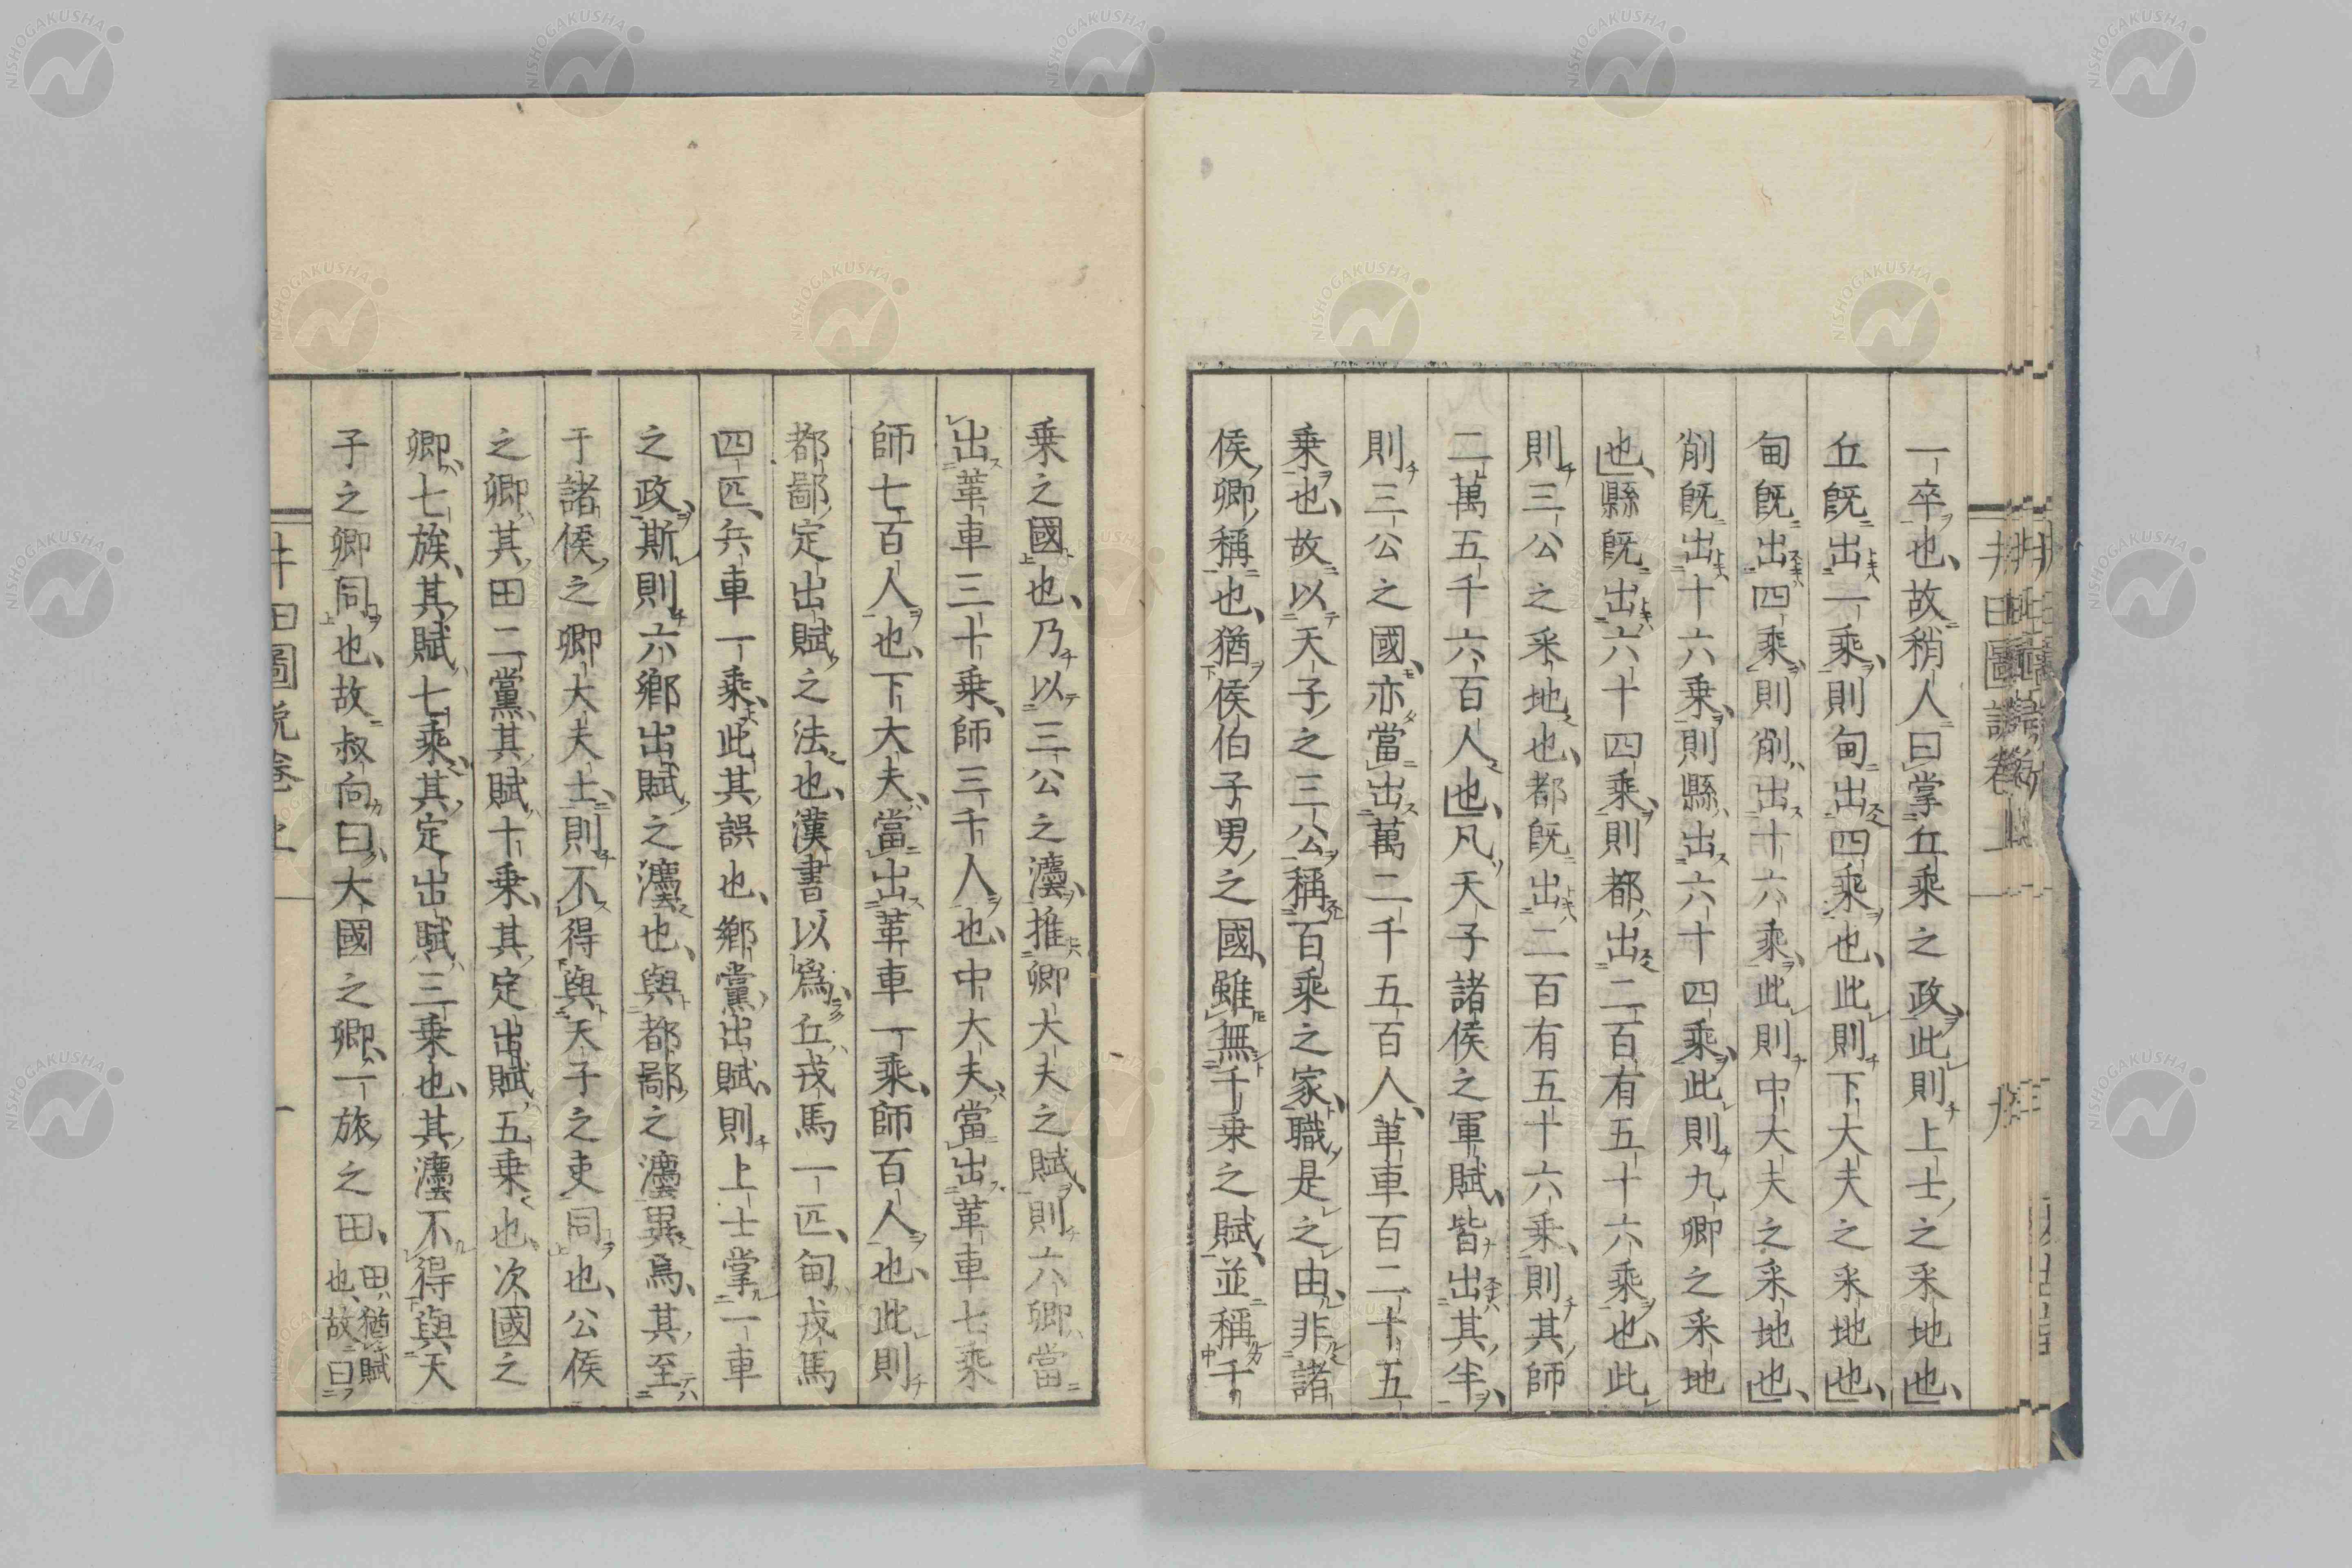 一卒也、故稍人曰掌丘乘之政、此則上士之釆地也、
丘既出一乘、則甸出四乘也、此則下大夫之釆地也、
甸既出四乘、則削出十六乘、此則中大夫之釆地也、
削既出十六乘、則縣出六十四乘、此則九卿之釆地
也、縣既出六十四乘、則都出二百有五十六乘也、此
則三公之釆地也、都既出二百有五十六乘、則其師
二萬五千六百人也、凡天子諸侯之軍賦、皆出其半、
則三公之國、亦當出萬二千五百人、革車百二十五
乘也、故以天子之三公稱百乘之家、職是之由、非諸
侯卿稱也、猶侯伯子男之國、雖無千乘之賦、並稱千
乘之國也、乃以三公之灋、推卿大夫之賦、則六卿當
出革車三十乘、師三千人也、中大夫、當出革車七乘
師七百人也、下大夫、當出革車一乘、師百人也、此則
都鄙定出賦之法也、漢書以爲丘戎馬一匹、甸戎馬
四匹、兵車一乘、此其誤也、鄉黨出賦、則上士掌一車
之政、斯則六鄉出賦之灋也、與都鄙之灋異焉、其至
于諸侯之卿大夫士、則不得與天子之吏同也、公侯
之卿、其田二黨、其賦十乘、其定出賦五乘也、次國之
卿、七族、其賦七乘、其定出賦三乘也、其灋不得與天
子之卿同也、故叔向曰、大國之卿、一旅之田、田猶賦
也、故曰
井田圖説卷上
NISHOGAKUSHA